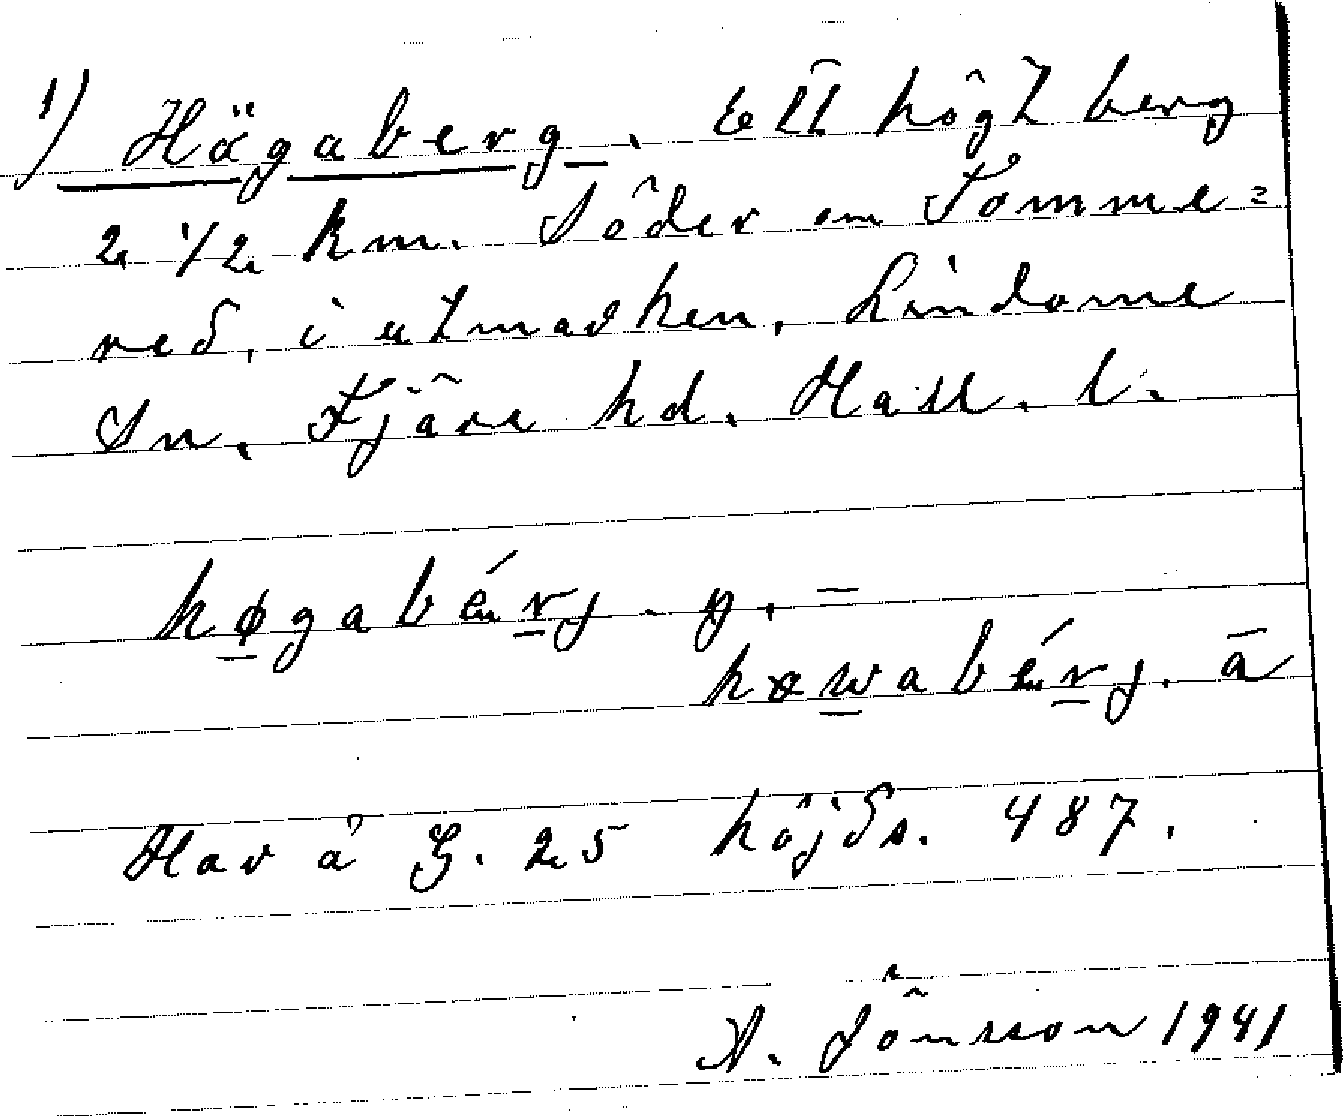 1) Högaberg. Ett högt berg
2 1/2 km. Söder om Tomme=
red, i utmarken, Lindome
Sn. Fjäre hd. Hall. l.
høgabérj. y. –
høwabérj. ā
Hav å G. 25 höjds. 487.
A. Jönsson 1941